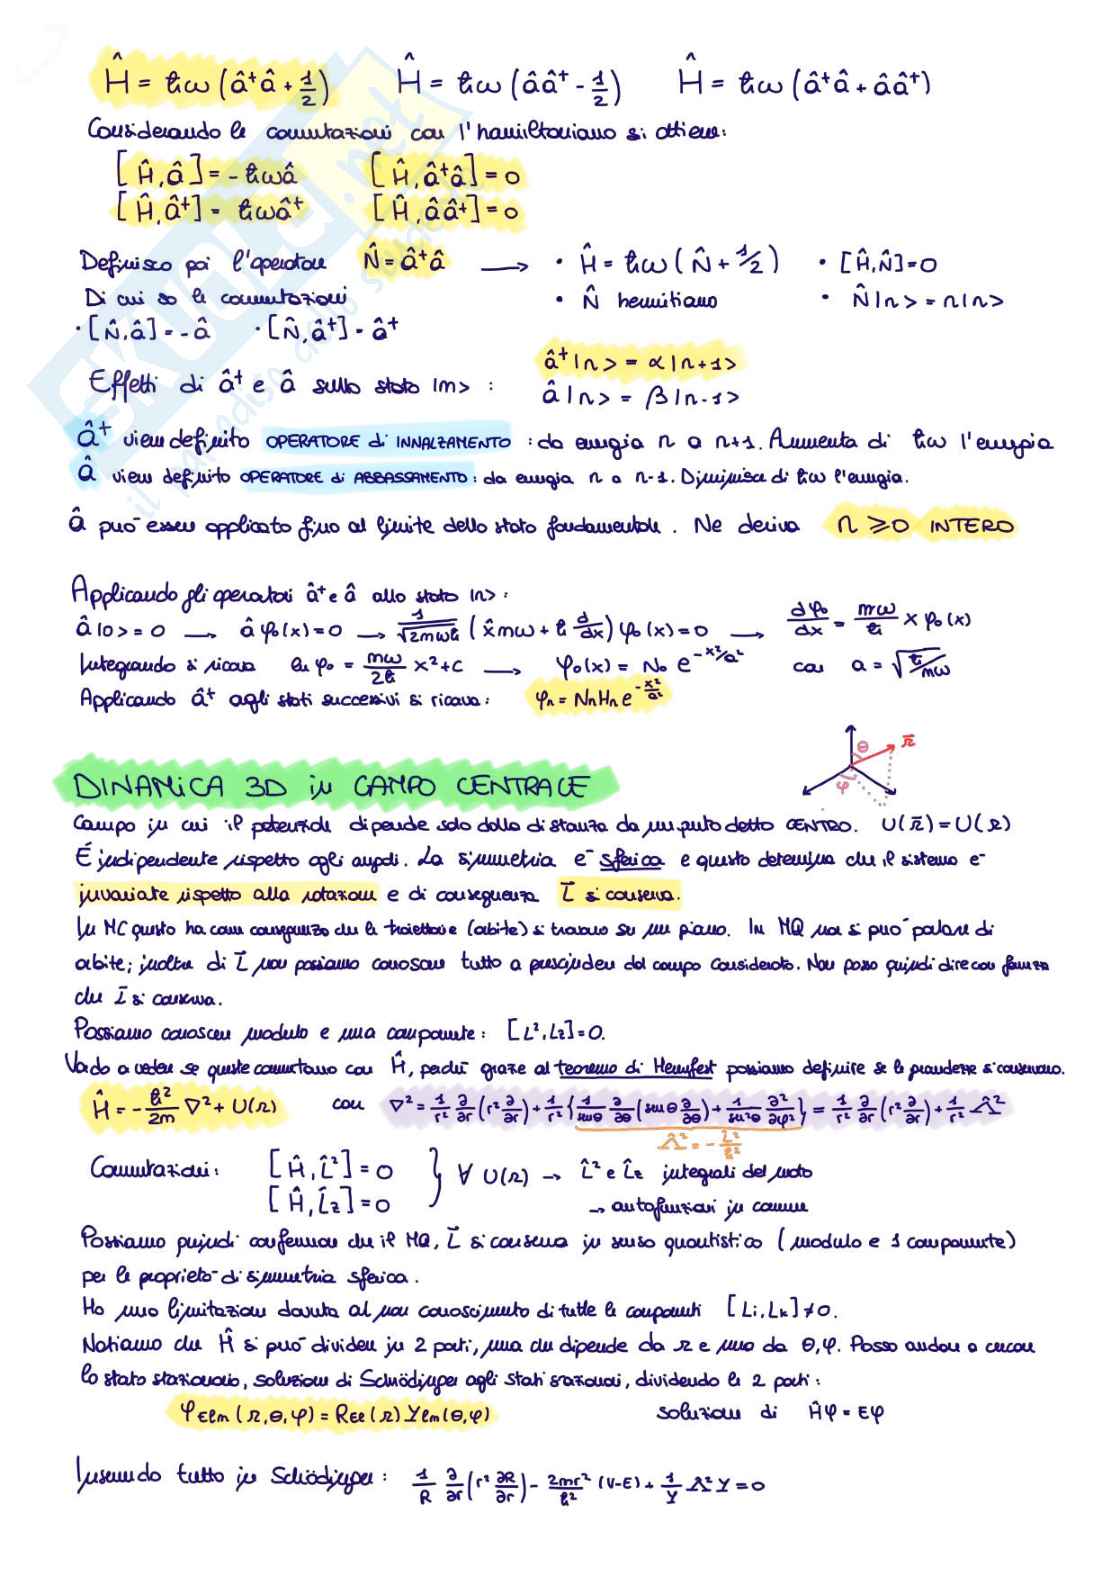 Ĥ = ħω (â⁺â + 1/2) Ĥ = ħω (ââ⁺ - 1/2) Ĥ = ħω (â⁺â + ââ⁺)
Considerando le commutazioni con l'hamiltoniano si ottiene:
[Ĥ, â] = - ħωâ [Ĥ, â⁺â] = 0
[Ĥ, â⁺] = ħωâ⁺ [Ĥ, ââ⁺] = 0
Definisco poi l'operatore N̂ = â⁺â → • Ĥ = ħω (N̂ + 1/2) • [Ĥ, N̂] = 0
Di cui so le commutazioni • N̂ hermitiano • N̂ |n> = n |n>
• [N̂, â] = - â • [N̂, â⁺] = â⁺
â⁺ |n> = α |n+1>
Effetti di â⁺ e â sullo stato |n> : â |n> = β |n-1>
â⁺ viene definito OPERATORE di INNALZAMENTO : da energia n a n+1. Aumenta di ħω l'energia
â viene definito OPERATORE di ABBASSAMENTO : da energia n a n-1. Diminuisce di ħω l'energia.
â può essere applicato fino al limite dello stato fondamentale. Ne deriva n ⩾ 0 INTERO
Applicando gli operatori â⁺ e â allo stato |n> :
â |0> = 0 → â φ₀(x) = 0 → 1/√2mωħ (x̂mω + ħ d/dx) φ₀(x) = 0 → dφ₀/dx = mω/ħ x φ₀(x)
Integrando si ricava ln φ₀ = mω/2ħ x² + c → φ₀(x) = N₀ e^(-x²/a²) con a = √ħ/mω
Applicando â⁺ agli stati successivi si ricava: φₙ = NₙHₙ e^(-x²/a²)
θ r̄ φ
DINAMICA 3D in CAMPO CENTRALE
Campo in cui il potenziale dipende solo dalla distanza da un punto detto CENTRO. U(r̄) = U(r)
È indipendente rispetto agli angoli. La simmetria è sferica e questo determina che il sistema è
invariante rispetto alla rotazione e di conseguenza L̄ si conserva.
In MC questo ha come conseguenza che le traiettorie (orbite) si trovano su un piano. In MQ non si può parlare di
orbite; inoltre di L̄ non possiamo conoscere tutto a prescindere dal campo considerato. Non posso quindi dire con forza
che L̄ si conserva.
Possiamo conoscere modulo e una componente: [L², Lz] = 0.
Vado a vedere se queste commutano con Ĥ, perché grazie al teorema di Henrfest possiamo definire se le grandezze si conservano.
Ĥ = - ħ²/2m ∇² + U(r) con ∇² = 1/r² ∂/∂r (r² ∂/∂r) + 1/r² { 1/senθ ∂/∂θ (senθ ∂/∂θ) + 1/sen²θ ∂²/∂φ² } = 1/r² ∂/∂r (r² ∂/∂r) + 1/r² Λ̂²
Λ̂² = - L̂²/ħ²
Commutazioni: [Ĥ, L̂²] = 0 } ∀ U(r) → L̂² e L̂z integrali del moto
[Ĥ, L̂z] = 0 → autofunzioni in comune
Possiamo quindi confermare che in MQ, L̄ si conserva in senso quantistico (modulo e 1 componente)
per le proprietà di simmetria sferica.
Ho una limitazione dovuta al non conoscimento di tutte le componenti [Li, Lk] ≠ 0.
Notiamo che Ĥ si può dividere in 2 parti, una che dipende da r e una da θ, φ. Posso andare a cercare
lo stato stazionario, soluzione di Schrödinger agli stati stazionari, dividendo le 2 parti:
φElm (r, θ, φ) = REl (r) Ylm (θ, φ) soluzione di Ĥφ = Eφ
Inserendo tutto in Schrödinger: 1/R ∂/∂r (r² ∂R/∂r) - 2mr²/ħ² (V-E) + 1/Y Λ̂² Y = 0
SKUOLA.net
il paradiso dello studente